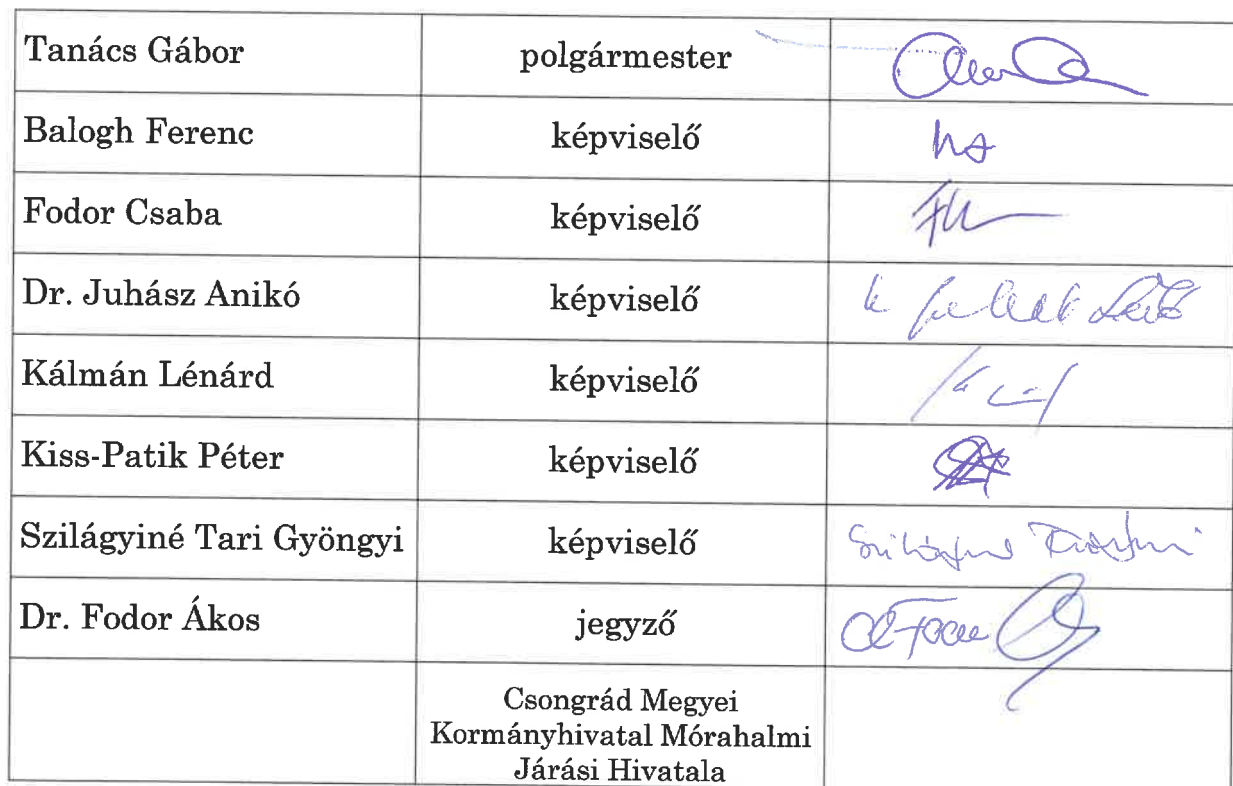 Tanács Gábor polgármester
Balogh Ferenc képviselő
Fodor Csaba képviselő
Dr. Juhász Anikó képviselő
Kálmán Lénárd képviselő
Kiss-Patik Péter képviselő
Szilágyiné Tari Gyöngyi képviselő
Dr. Fodor Ákos jegyző
Csongrád Megyei
Kormányhivatal Mórahalmi
Járási Hivatala